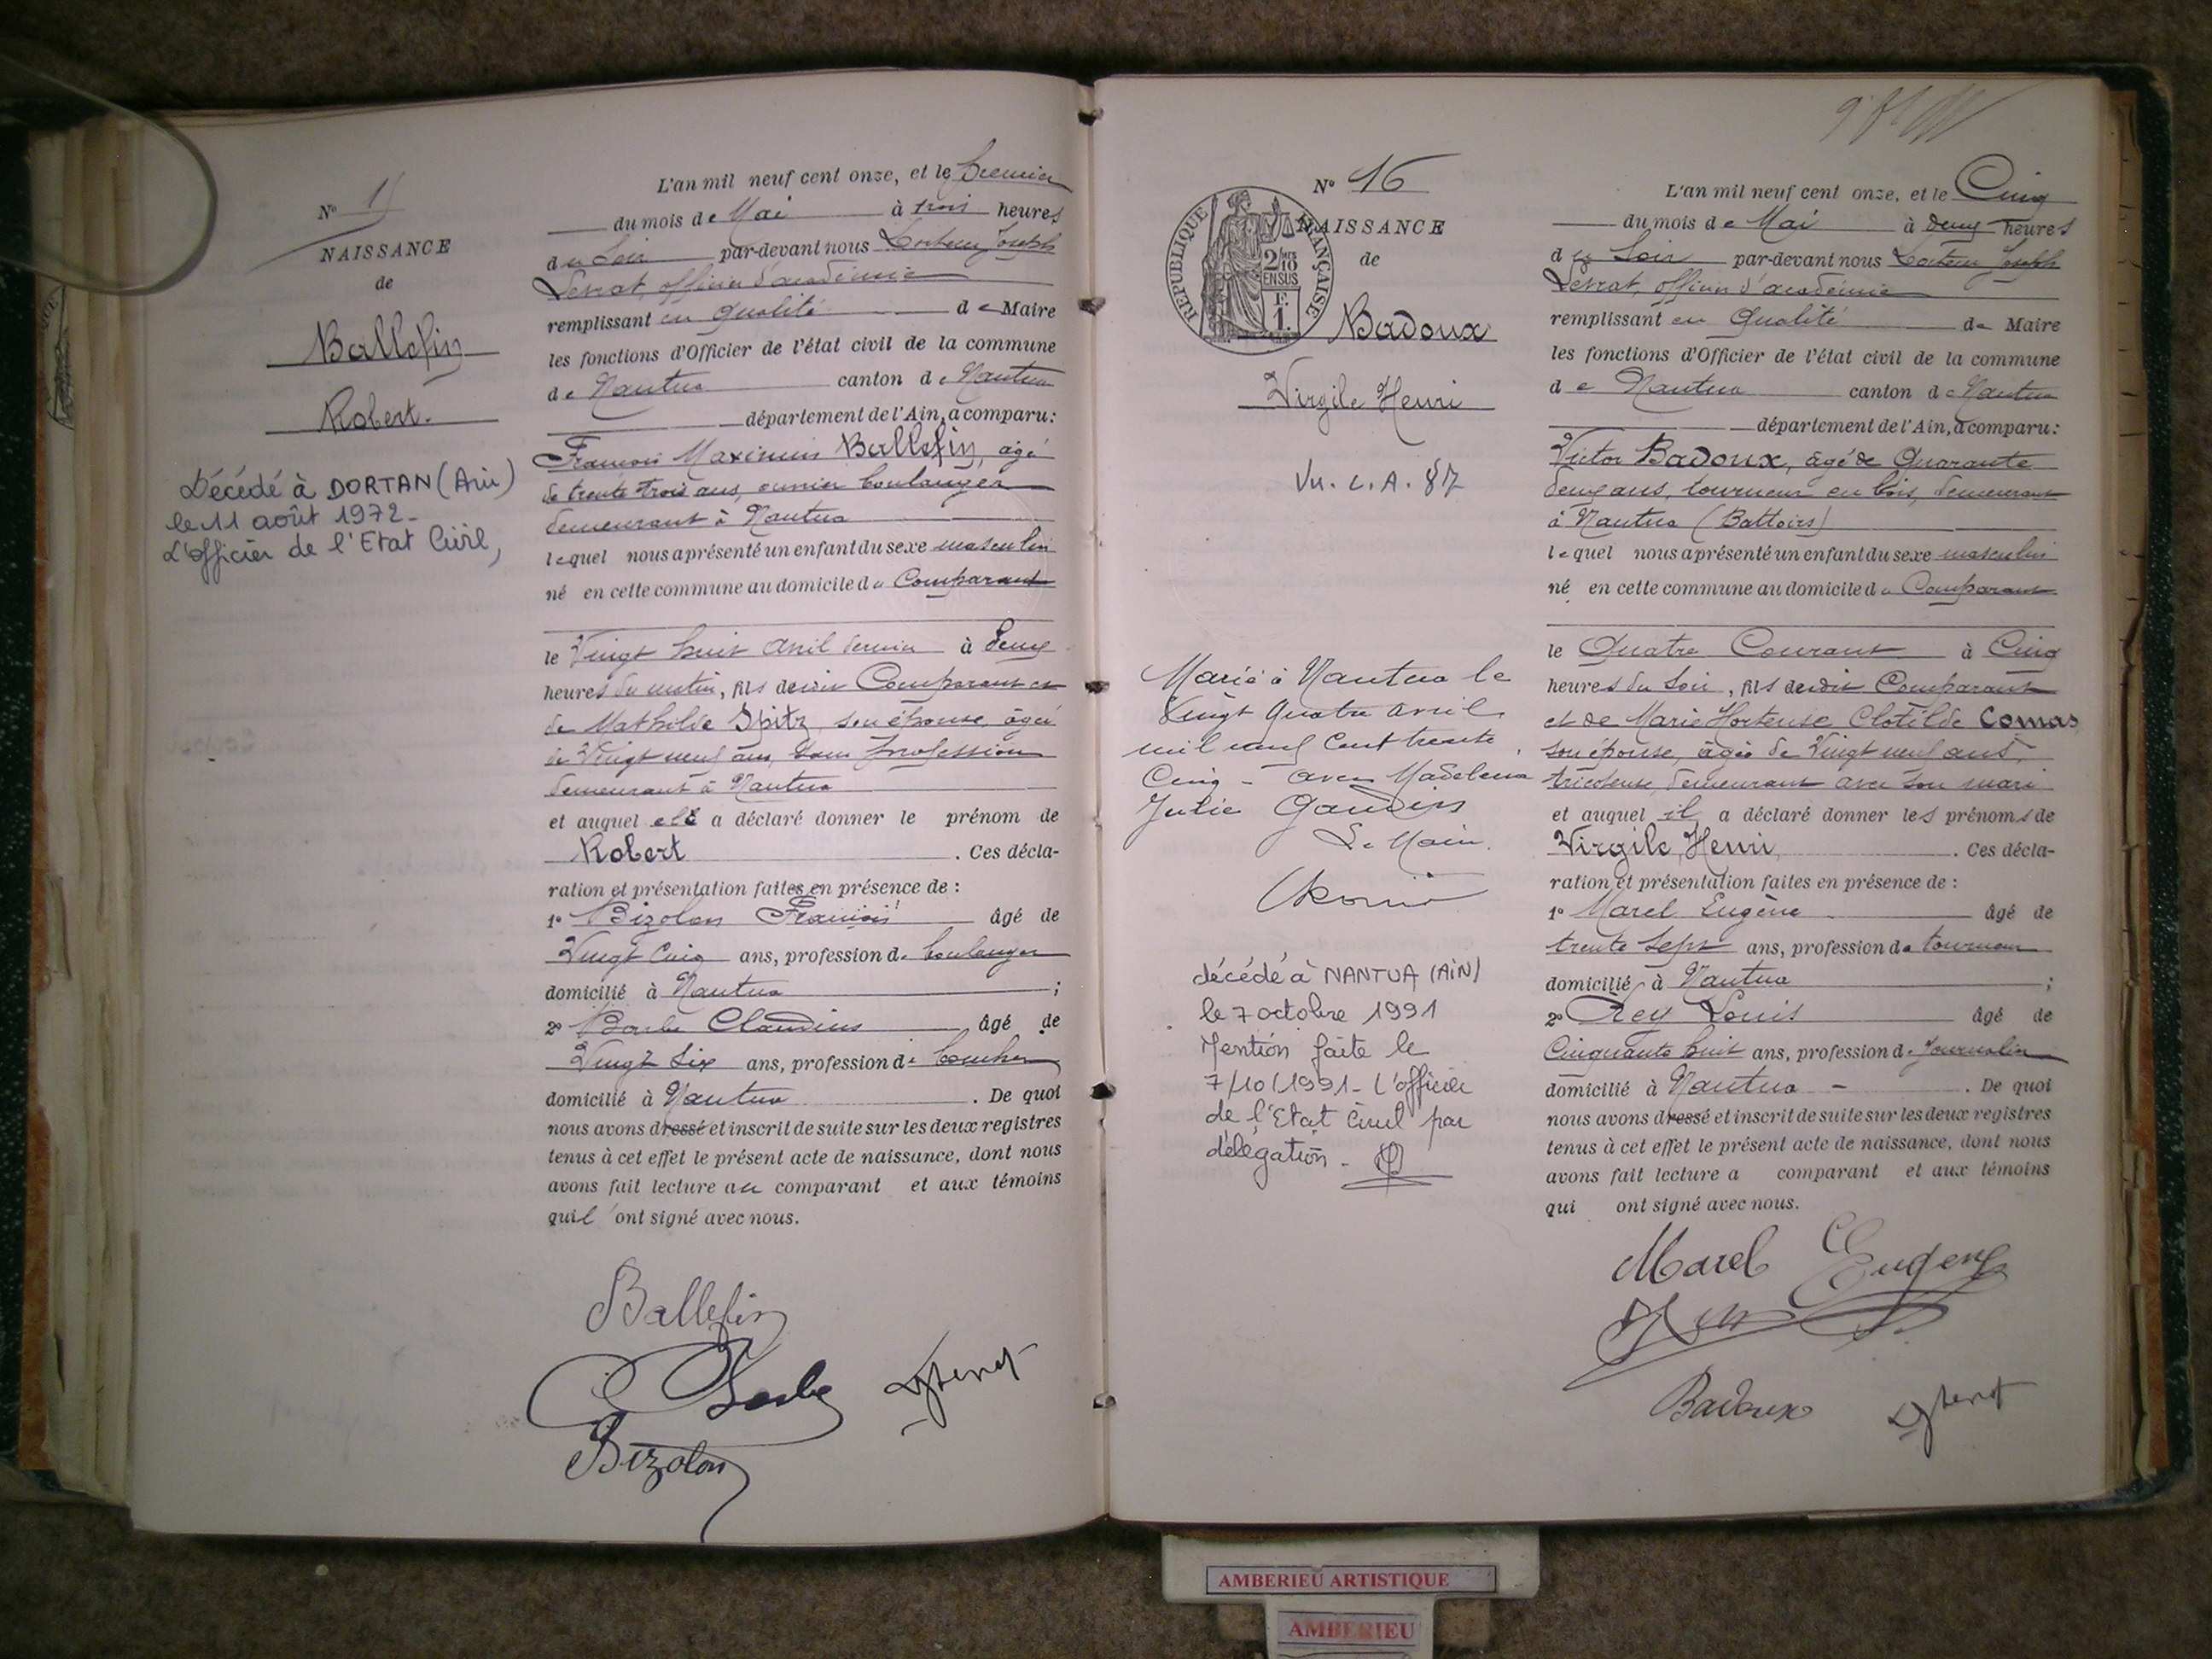 N° 15
NAISSANCE
de
Ballefin
Robert.
Décédé à DORTAN (Ain)
le 11 août 1972.
L'officier de l'Etat Civil,
L'an mil neuf cent onze, et le premier
du mois de Mai à trois heures
du Soir par-devant nous Docteur Joseph
Levrat, officier d'académie
remplissant en qualité de Maire
les fonctions d'Officier de l'état civil de la commune
de Nantua canton de Nantua
département de l'Ain, a comparu :
François Maximin Ballefin, âgé
de trente trois ans, ouvrier boulanger
demeurant à Nantua
lequel nous a présenté un enfant du sexe masculin
né en cette commune au domicile du Comparant
le Vingt huit avril dernier à deux
heures du matin, fils dudit Comparant et
de Mathilde Spitz son épouse, âgée
de Vingt neuf ans, sans profession
demeurant à Nantua
et auquel a déclaré donner le prénom de
Robert . Ces décla-
ration et présentation faites en présence de :
1° Bizolon François âgé de
Vingt Cinq ans, profession de boulanger
domicilié à Nantua ;
2° Barbe Claudius âgé de
Vingt Six ans, profession de boucher
domicilié à Nantua . De quoi
nous avons dressé et inscrit de suite sur les deux registres
tenus à cet effet le présent acte de naissance, dont nous
avons fait lecture au comparant et aux témoins
qui ont signé avec nous.
Ballefin
Barbe
Bizolon
N° 16
NAISSANCE
de
REPUBLIQUE FRANÇAISE
2/10
EN SUS
F.
1.
Badoux
Virgile Henri
Vu. L.A. 87
Marié à Nantua le
Vingt quatre avril
mil neuf cent trente
Cinq - avec Madeleine
Julie Gaudin
Le Maire.
décédé à NANTUA (AIN)
le 7 octobre 1991
Mention faite le
7/10/1991 - L'officier
de l'Etat Civil par
délégation -
L'an mil neuf cent onze, et le Cinq
du mois de Mai à deux heures
du Soir par-devant nous Docteur Joseph
Levrat, officier d'académie
remplissant en qualité de Maire
les fonctions d'Officier de l'état civil de la commune
de Nantua canton de Nantua
département de l'Ain, a comparu :
Victor Badoux, âgé de Quarante
deux ans, tourneur en bois, demeurant
à Nantua (Battoirs)
lequel nous a présenté un enfant du sexe masculin
né en cette commune au domicile du Comparant
le Quatre Courant à Cinq
heures du Soir, fils dudit Comparant
et de Marie Hortense Clotilde Comas
son épouse, âgée de Vingt neuf ans,
tricoteuse, demeurant avec son mari
et auquel il a déclaré donner les prénoms de
Virgile, Henri, . Ces décla-
ration et présentation faites en présence de :
1° Marel Eugène âgé de
trente Sept ans, profession de tourneur
domicilié à Nantua ;
2° Rey Louis âgé de
Cinquante huit ans, profession de Journalier
domicilié à Nantua - . De quoi
nous avons dressé et inscrit de suite sur les deux registres
tenus à cet effet le présent acte de naissance, dont nous
avons fait lecture a comparant et aux témoins
qui ont signé avec nous.
Marel Eugene
Badoux
AMBERIEU ARTISTIQUE
AMBERIEU